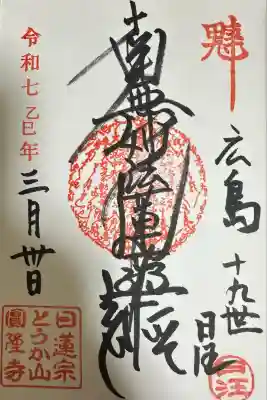 広島
十九世
南無妙法蓮華経
令和七乙巳年
三月卅日
日蓮宗
とうか山
圓隆寺